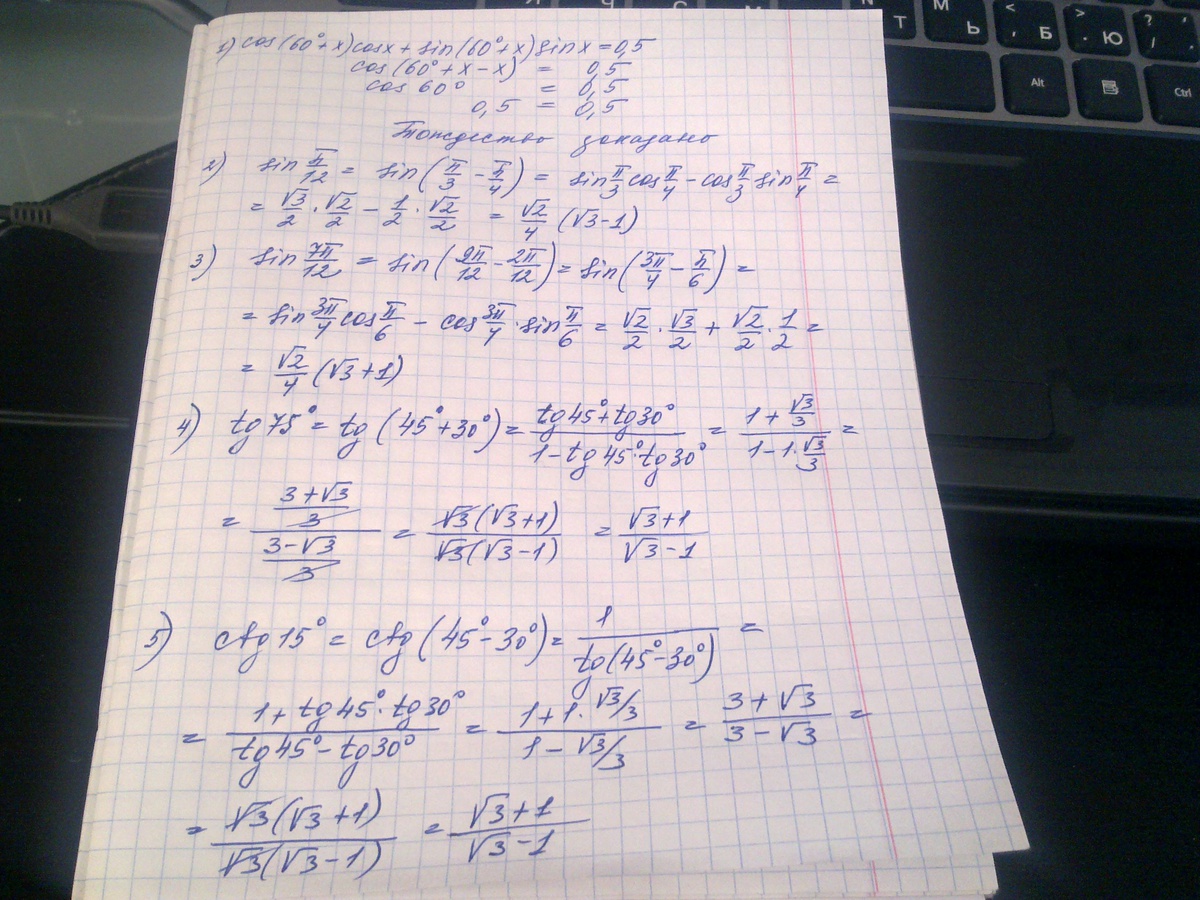 1) cos(60°+x)cosx+sin(60°+x)sinx=0,5
cos(60°+x-x) = 0,5
cos 60° = 0,5
0,5 = 0,5
Тождество доказано
2) sin π/12 = sin(π/3 - π/4) = sin π/3 cos π/4 - cos π/3 sin π/4 =
= √3/2 · √2/2 - 1/2 · √2/2 = √2/4 (√3-1)
3) sin 7π/12 = sin(9π/12 - 2π/12) = sin(3π/4 - π/6) =
= sin 3π/4 cos π/6 - cos 3π/4 · sin π/6 = √2/2 · √3/2 + √2/2 · 1/2 =
= √2/4 (√3+1)
4) tg 75° = tg (45°+30°) = (tg45°+tg30°)/(1-tg45°·tg30°) = (1+√3/3)/(1-1·√3/3) =
= ((3+√3)/3)/((3-√3)/3) = (√3(√3+1))/(√3(√3-1)) = (√3+1)/(√3-1)
5) ctg 15° = ctg (45°-30°) = 1/(tg(45°-30°)) =
= (1+tg45°·tg30°)/(tg45°-tg30°) = (1+1·√3/3)/(1-√3/3) = (3+√3)/(3-√3) =
= (√3(√3+1))/(√3(√3-1)) = (√3+1)/(√3-1)
Т Ь < , Б > . Ю ? / ,
Alt Ctrl